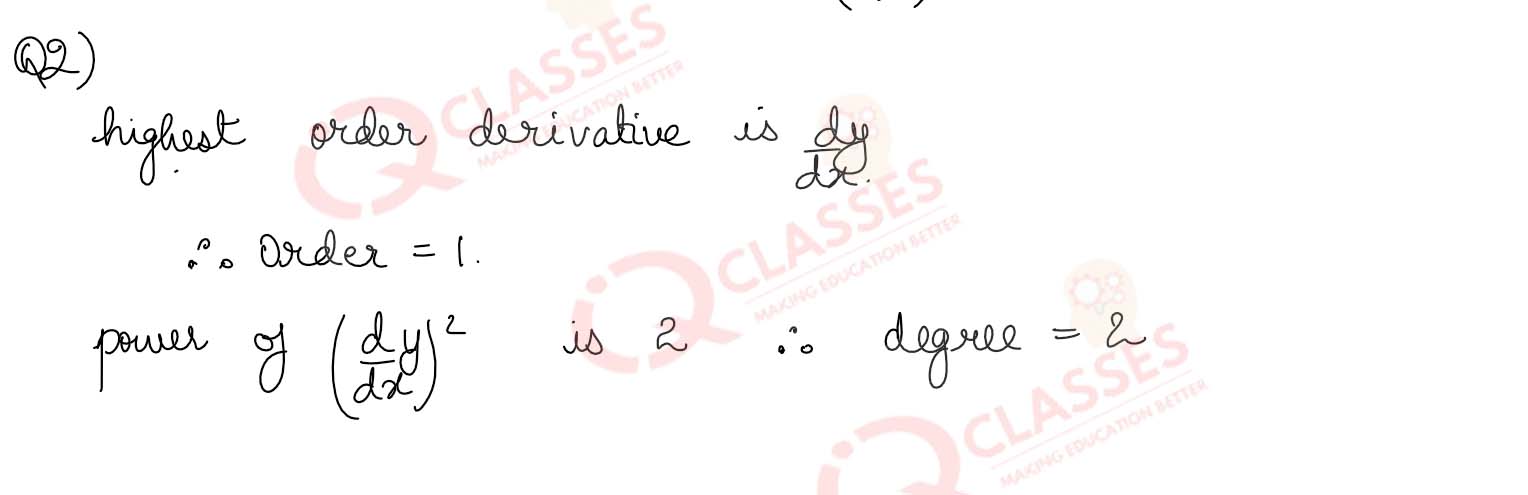 Q2)
highest order derivative is dy/dx.
∴ Order = 1.
power of (dy/dx)² is 2 ∴ degree = 2
iQ CLASSES
MAKING EDUCATION BETTER
iQ CLASSES
MAKING EDUCATION BETTER
iQ CLASSES
MAKING EDUCATION BETTER